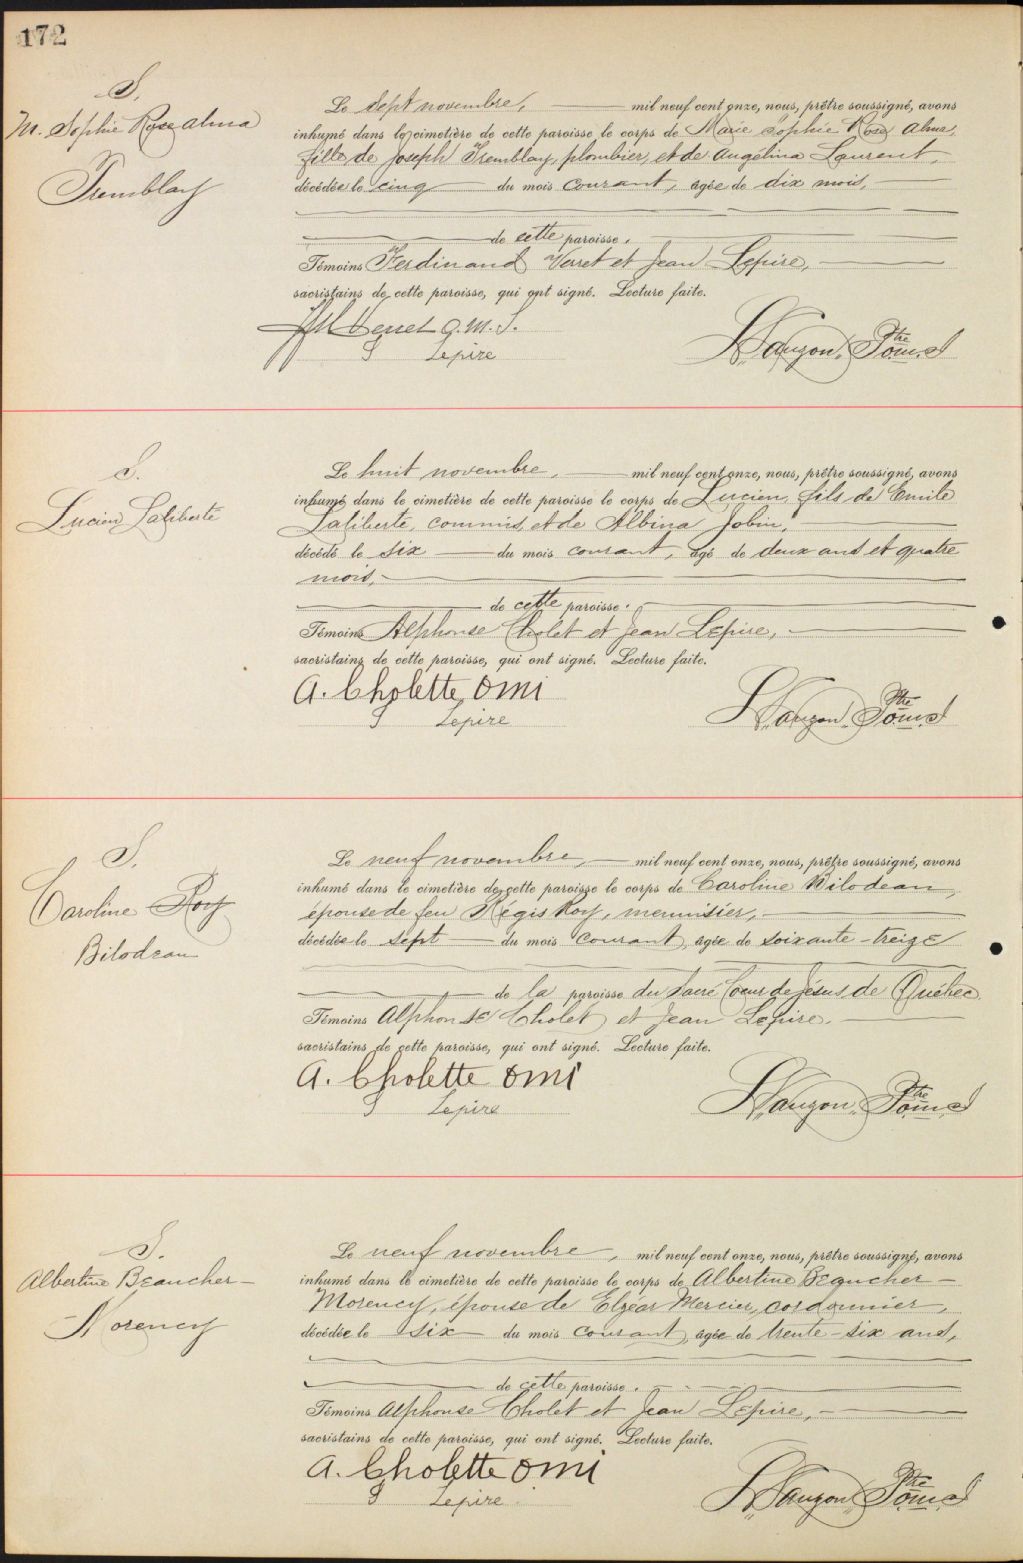 172
S.
M. Sophie Rose Alma
Tremblay
Le sept novembre, mil neuf cent onze, nous, prêtre soussigné, avons
inhumé dans le cimetière de cette paroisse le corps de Marie Sophie Rose Alma,
fille de Joseph Tremblay, plombier, et de Angélina Laurent,
décédée le cinq du mois courant, âgée de dix mois,
de cette paroisse.
Témoins Ferdinand Verret et Jean Lepire,
sacristains de cette paroisse, qui ont signé. Lecture faite.
Verret O.M.I.
J Lepire
Lauzon, Ptre O.m.I
S.
Lucien Laliberté
Le huit novembre, mil neuf cent onze, nous, prêtre soussigné, avons
inhumé dans le cimetière de cette paroisse le corps de Lucien, fils de Emile
Laliberté, commis, et de Albina Jobin,
décédé le six du mois courant, âgé de deux ans et quatre
mois,
de cette paroisse.
Témoins Alphonse Cholet et Jean Lepire,
sacristains de cette paroisse, qui ont signé. Lecture faite.
A. Cholette, OMI
J Lepire
Lauzon, Ptre O.m.I
S.
Caroline Roy
Bilodeau
Le neuf novembre, mil neuf cent onze, nous, prêtre soussigné, avons
inhumé dans le cimetière de cette paroisse le corps de Caroline Bilodeau,
épouse de feu Régis Roy, menuisier,
décédée le sept du mois courant, âgée de soixante-treize
de la paroisse du Sacré Coeur de Jésus, de Québec.
Témoins Alphonse Cholet et Jean Lepire.
sacristains de cette paroisse, qui ont signé. Lecture faite.
A. Cholette OMI
J Lepire
Lauzon, Ptre O.m.I
S.
Albertine Beaucher-
Morency
Le neuf novembre, mil neuf cent onze, nous, prêtre soussigné, avons
inhumé dans le cimetière de cette paroisse le corps de Albertine Beaucher-
Morency, épouse de Elzéar Mercier, cordonnier,
décédée le six du mois courant, âgée de trente-six ans,
de cette paroisse.
Témoins Alphonse Cholet et Jean Lepire,
sacristains de cette paroisse, qui ont signé. Lecture faite.
A. Cholette OMI
J Lepire
Lauzon, Ptre O.m.I